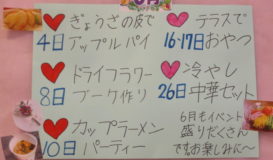 6月
ぎょうざの皮で
4日 アップルパイ
テラスで
16・17日 おやつ
ドライフラワー
8日 ブーケ作り
冷やし
26日 中華セット
カップラーメン
10日 パーティー
6月もイベント
盛りだくさん
ですお楽しみん〜